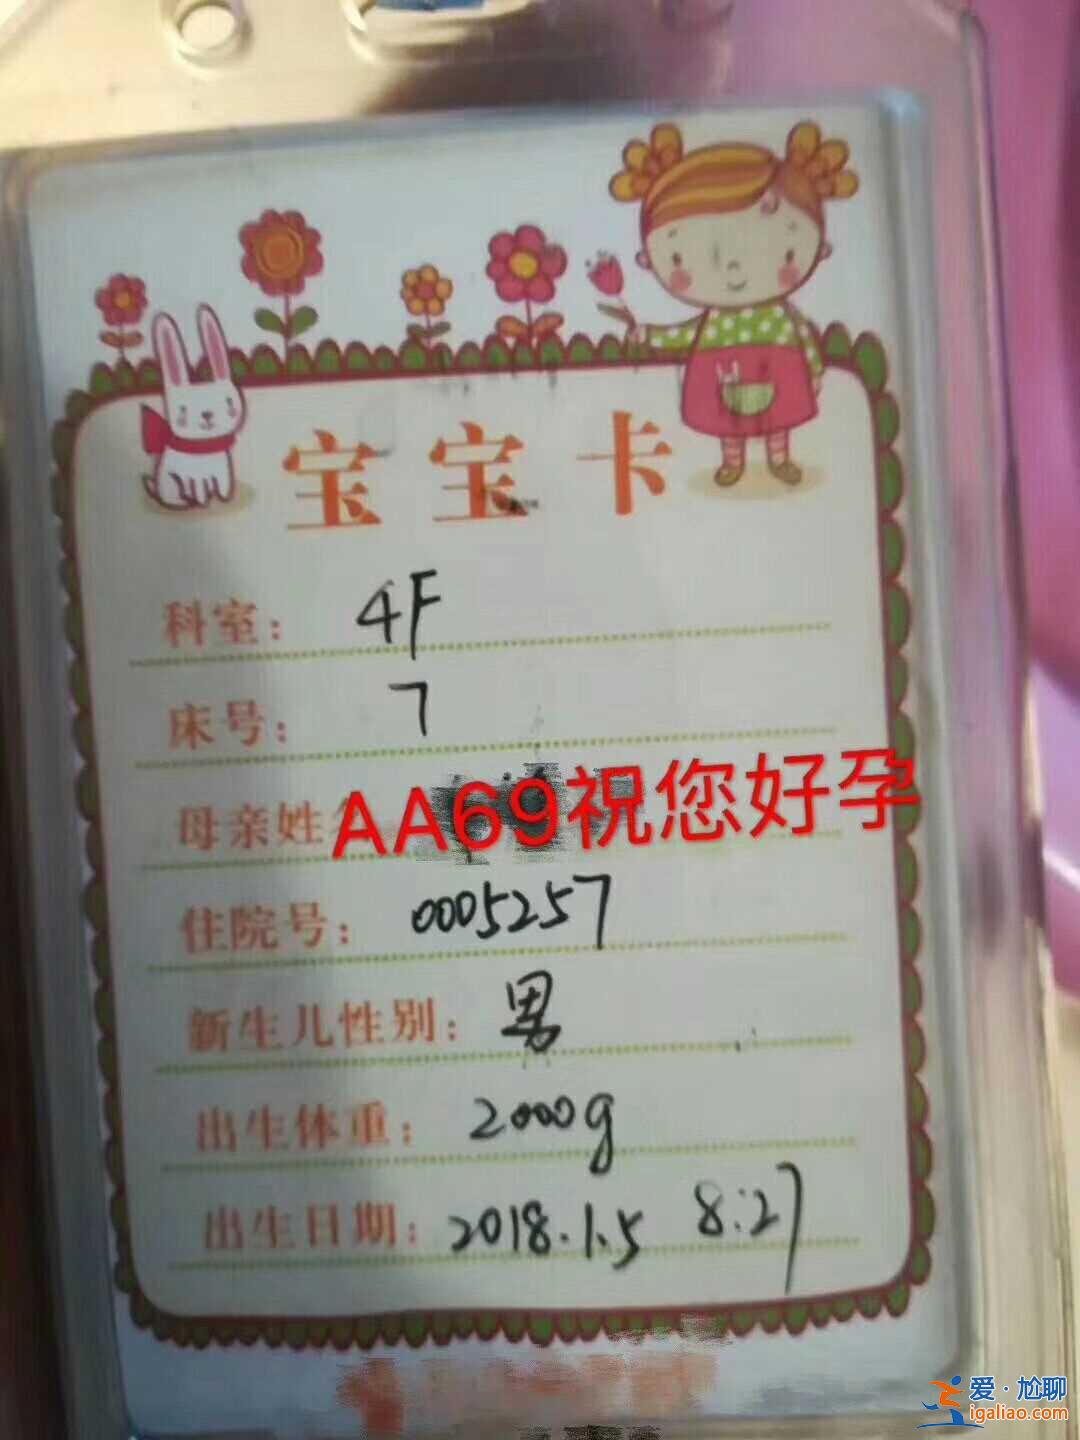 宝宝卡
科室： 4F
床号： 7
母亲姓
AA69祝您好孕
住院号： 0005257
新生儿性别： 男
出生体重： 2000g
出生日期： 2018.1.5 8:27
爱·尬聊
igaliao.com